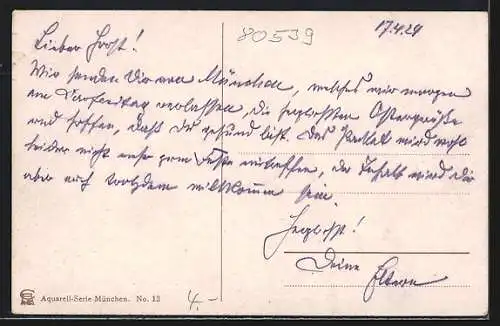 80539
17.4.29
Lieber Horst!
Wir senden Dir von München, welches wir morgen
am Karfreitag verlassen, die herzlichsten Ostergrüße
und hoffen, daß Du gesund bist. Das Packet wird wohl
leider nicht mehr zum Feste eintreffen, der Inhalt wird Dir
aber auch trotzdem willkommen sein.
Herzlichst!
Deine Eltern
Aquarell-Serie München. No. 12
4.-